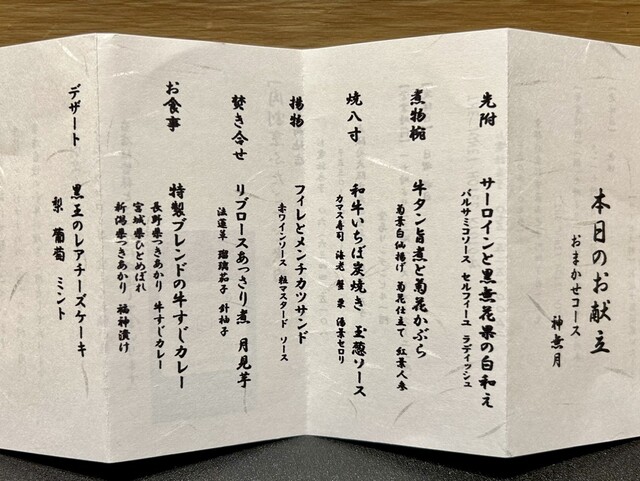 本日のお献立
おまかせコース
神無月
先附
サーロインと黒無花果の白和え
バルサミコソース セルフィーユ ラディッシュ
煮物椀
牛タン旨煮と菊花かぶら
菊葉白仙揚げ 菊花仕立て 紅葉人参
焼八寸
和牛いちぼ炭焼き 玉葱ソース
カマス寿司 海老 蟹 栗 湯葉セロリ
揚物
フィレとメンチカツサンド
赤ワインソース 粒マスタード ソース
焚き合せ
リブロースあっさり煮 月見芋
法蓮草 瑠璃茄子 針柚子
お食事
特製ブレンドの牛すじカレー
長野県つきあかり 牛すじカレー
宮城県ひとめぼれ
新潟県つきあかり 福神漬け
デザート
黒王のレアチーズケーキ
梨 葡萄 ミント